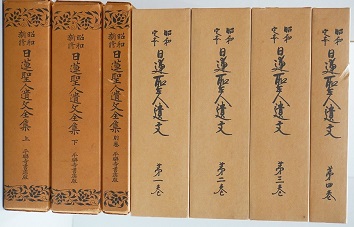 昭和
新修
日蓮聖人遺文全集
上
平楽寺書店版
昭和
新修
日蓮聖人遺文全集
下
平楽寺書店版
昭和
新修
日蓮聖人遺文全集
別巻
平楽寺書店版
昭和
定本
日蓮聖人遺文
第一巻
昭和
定本
日蓮聖人遺文
第二巻
昭和
定本
日蓮聖人遺文
第三巻
昭和
定本
日蓮聖人遺文
第四巻